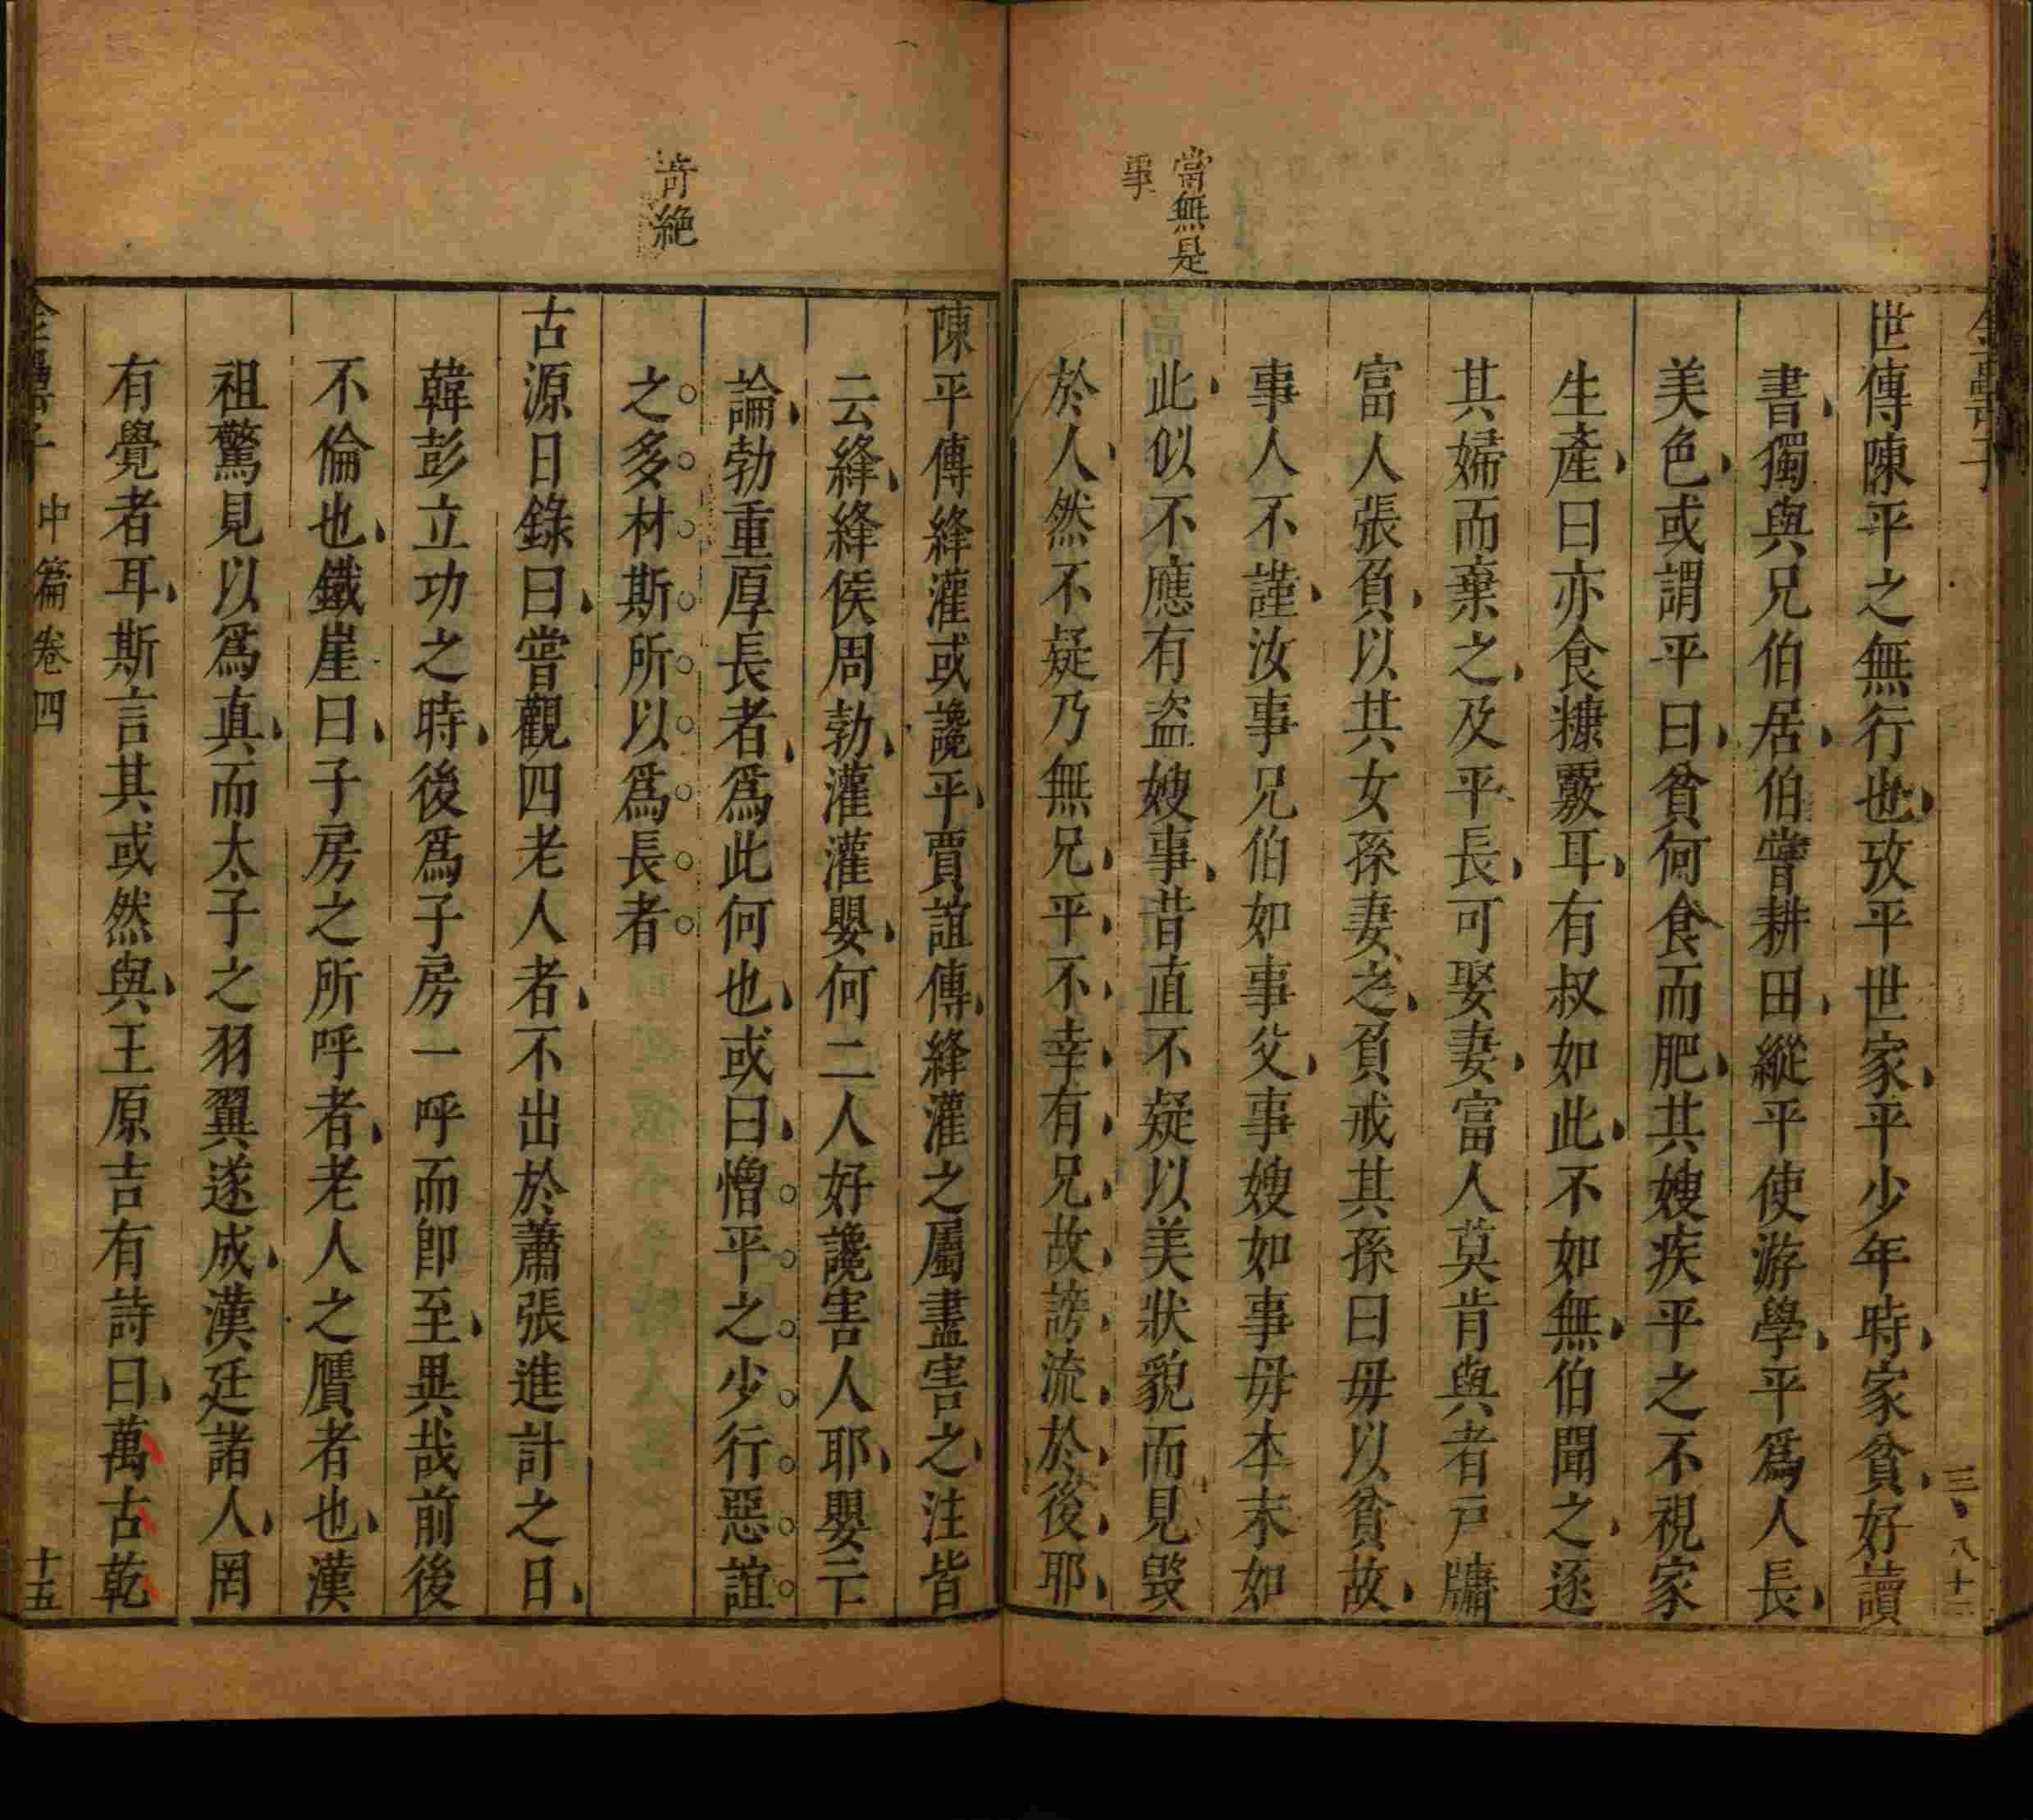 當無是
事
世傳陳平之無行也攷平世家平少年時家貧好讀
書獨與兄伯居伯嘗耕田縱平使游學平爲人長
美色或謂平曰貧何食而肥其嫂疾平之不視家
生產曰亦食糠覈耳有叔如此不如無伯聞之逐
其婦而棄之及平長可娶妻富人莫肯與者戶牖
富人張負以其女孫妻之負戒其孫曰毋以貧故
事人不謹汝事兄伯如事父事嫂如事毋本末如
此似不應有盗嫂事昔直不疑以美狀貌而見毀
於人然不疑乃無兄平不幸有兄故謗流於後耶
竒絶
陳平傳絳灌或讒平賈誼傳絳灌之屬盡害之注皆
云絳絳侯周勃灌灌嬰何二人好讒害人耶嬰不
論勃重厚長者爲此何也或曰憎平之少行惡誼
之多材斯所以爲長者
古源日錄曰嘗觀四老人者不出於蕭張進計之日
韓彭立功之時後爲子房一呼而卽至異哉前後
不倫也鐵崖曰子房之所呼者老人之贋者也漢
祖驚見以爲真而太子之羽翼遂成漢廷諸人罔
有覺者耳斯言其或然與王原吉有詩曰萬古乾
中篇卷四
十五